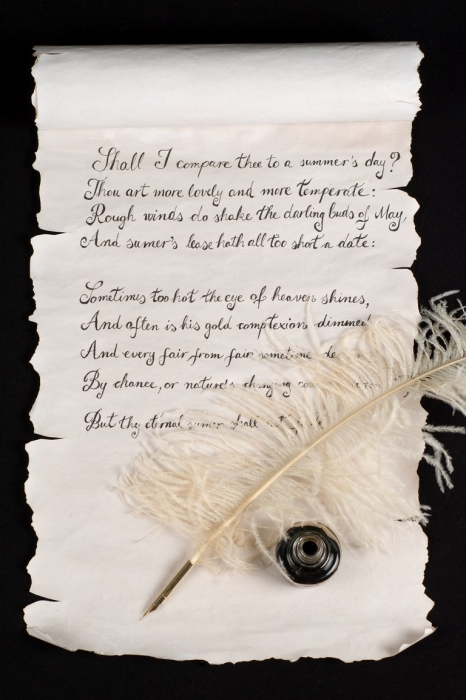 Shall I compare thee to a summer's day?
Thou art more lovely and more temperate:
Rough winds do shake the darling buds of May,
And sumer's lease hath all too short a date:
Sometimes too hot the eye of heaven shines,
And often is his gold complexion dimmed
And every fair from fair sometime de
By chance, or nature's changing
But thy eternal sumer shall not